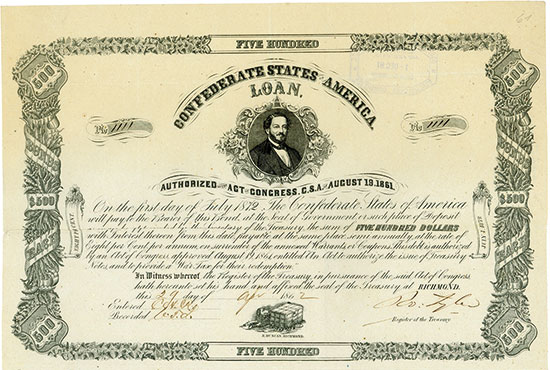 61
FIVE HUNDRED
500 500
CONFEDERATE STATES OF AMERICA,
LOAN.
No. 1111 No. 1111
AUTHORIZED BY ACT OF CONGRESS, C.S.A. OF AUGUST 19, 1861.
On the first day of July 1872, The Confederate States of America
will pay to the Bearer of this Bond, at the Seat of Government or such place of Deposit
by the Secretary of the Treasury, the sum of FIVE HUNDRED DOLLARS
with Interest thereon from this date, payable at the same place semi-annually, at the rate of
Eight per Cent per annum, on surrender of the annexed Warrants or Coupons. This debt is authorized
by an Act of Congress approved August 19, 1861, entitled An Act to authorize the issue of Treasury
Notes, and to provide a War Tax for their redemption.
$500 $500
In Witness whereof, the Register of the Treasury, in pursuance of the said Act of Congress,
hath hereunto set his hand and affixed the seal of the Treasury at RICHMOND,
this day of Apr 1862
Entered
Recorded
Ro. Tyler
Register of the Treasury.
E. DUNCAN, RICHMOND.
500 500
FIVE HUNDRED